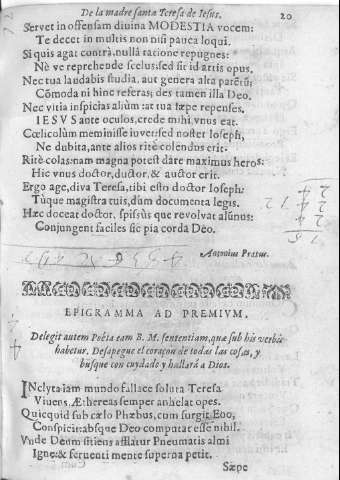 De la madre santa Teresa de Iesus. 20
Seruet in offensam diuina MODESTIA vocem:
Te decet in multis non nisi pauca loqui.
Si quis agat contrà, nullâ ratione repugnes:
Nè ve reprehende scelus, sed sic id artis opus.
Nec tua laudabis studia, aut genera alta parētū;
Cōmoda ni hinc referas; des tamen illa Deo.
Nec vitia inspicias aliūm: at tua sæpe repenses.
IESVS ante oculos, crede mihi, vnus eat.
Cœlicolûm meminisse iuuer: sed noster Ioseph,
Ne dubita, ante alios ritè colendus erit.
Ritè colas: nam magna potest dare maximus heros:
Hic vnus doctor, ductor, & auctor erit.
Ergo age, diva Teresa, tibi esto doctor Ioseph:
Túque magistra tuis, dùm documenta legis.
Hæc doceat doctor, spissùs que revolvat alūnus:
Conjungent faciles sic pia corda Deo.
Antonius Pratus.
EPIGRAMMA AD PREMIVM.
Delegit autem Poëta eam B. M. sententiam, quæ sub his verbis
habetur. Desapegue el coraçon de todas las cosas, y
busque con cuydado y hallarà a Dios.
INclyta iam mundo fallace soluta Teresa
Viuens, Æthereas semper anhelat opes.
Quicquid sub cælo Phœbus, cum surgit Eoo,
Conspicit: absque Deo computat esse nihil.
Vnde Deum sitiens afflatur Pneumatis almi
Igne: & feruenti mente superna petit.
Sæpe